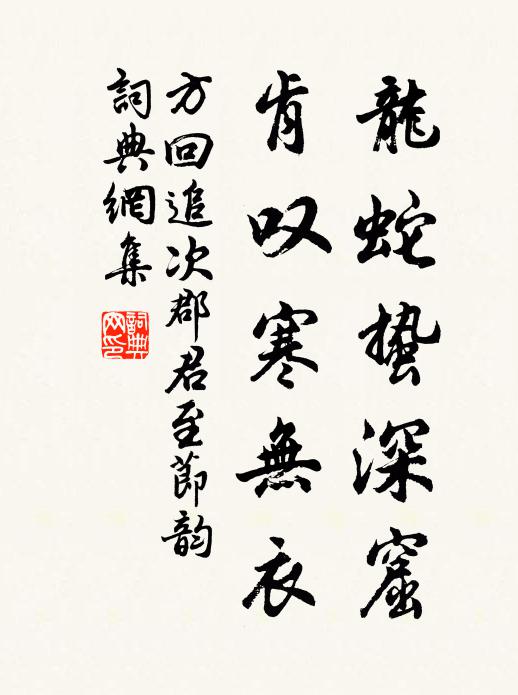 龍蛇蟄深窟
肯叹寒無衣
方回追次郡君至節韵
詞典網集
詞典网印